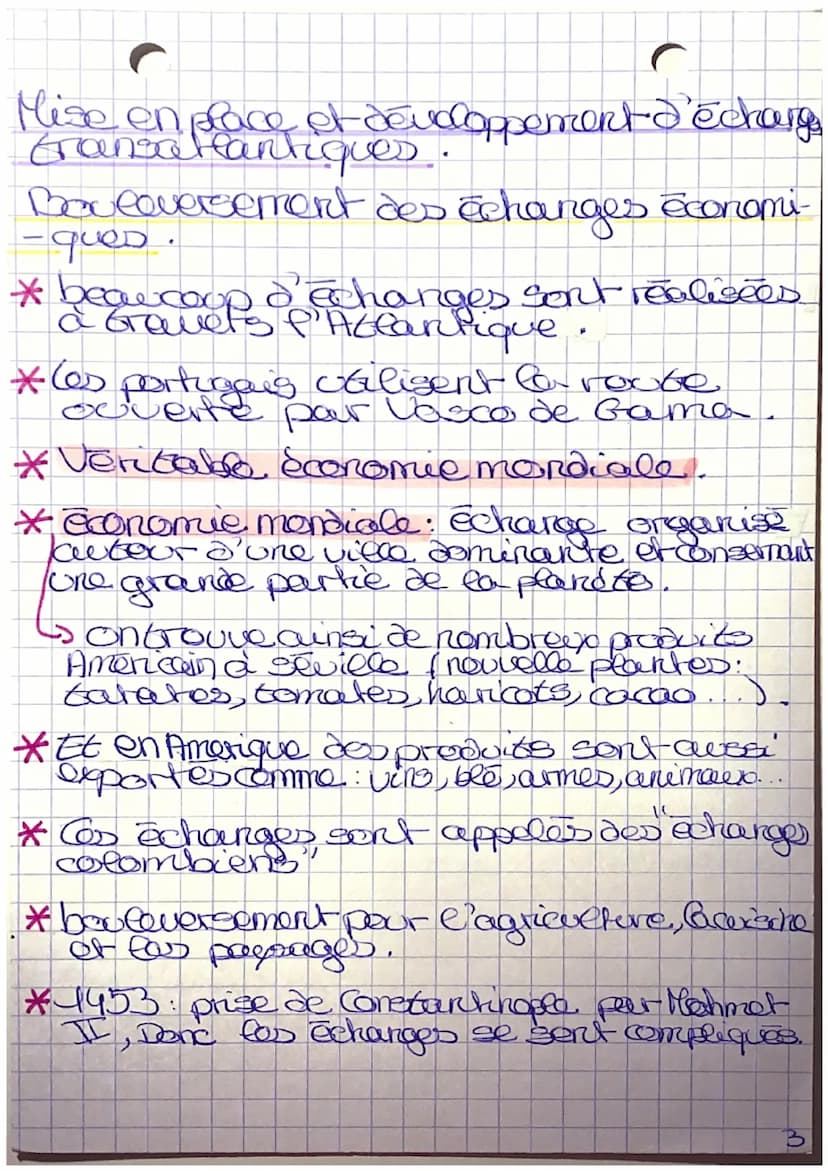 Mise en place et développement d'échang
transatlantiques.
Bouleversement des échanges économi-
-ques.
* beaucoup d'échanges sont réalisées
à travers l'Atlantique.
* Les portugais utilisent la route
ouverte par Vasco de Gama.
* Véritable économie mondiale.
* économie mondiale : échange organisé
autour d'une ville dominante et consernant
une grande partie de la planète.
→ on trouve ainsi de nombreux produits
Américain à séville (nouvelle plantes :
patates, tomates, haricots, cacao...).
* Et en Amérique des produits sont aussi
exportes comme : vins, blé, armes, animaux...
* Ces échanges sont appelés des "échanges
colombiens"
* bouleversement pour l'agriculture, la cuisine
et les paysages.
* 1453 : prise de Constantinople par Mehmet
II, Donc les échanges se sont compliqués.
3